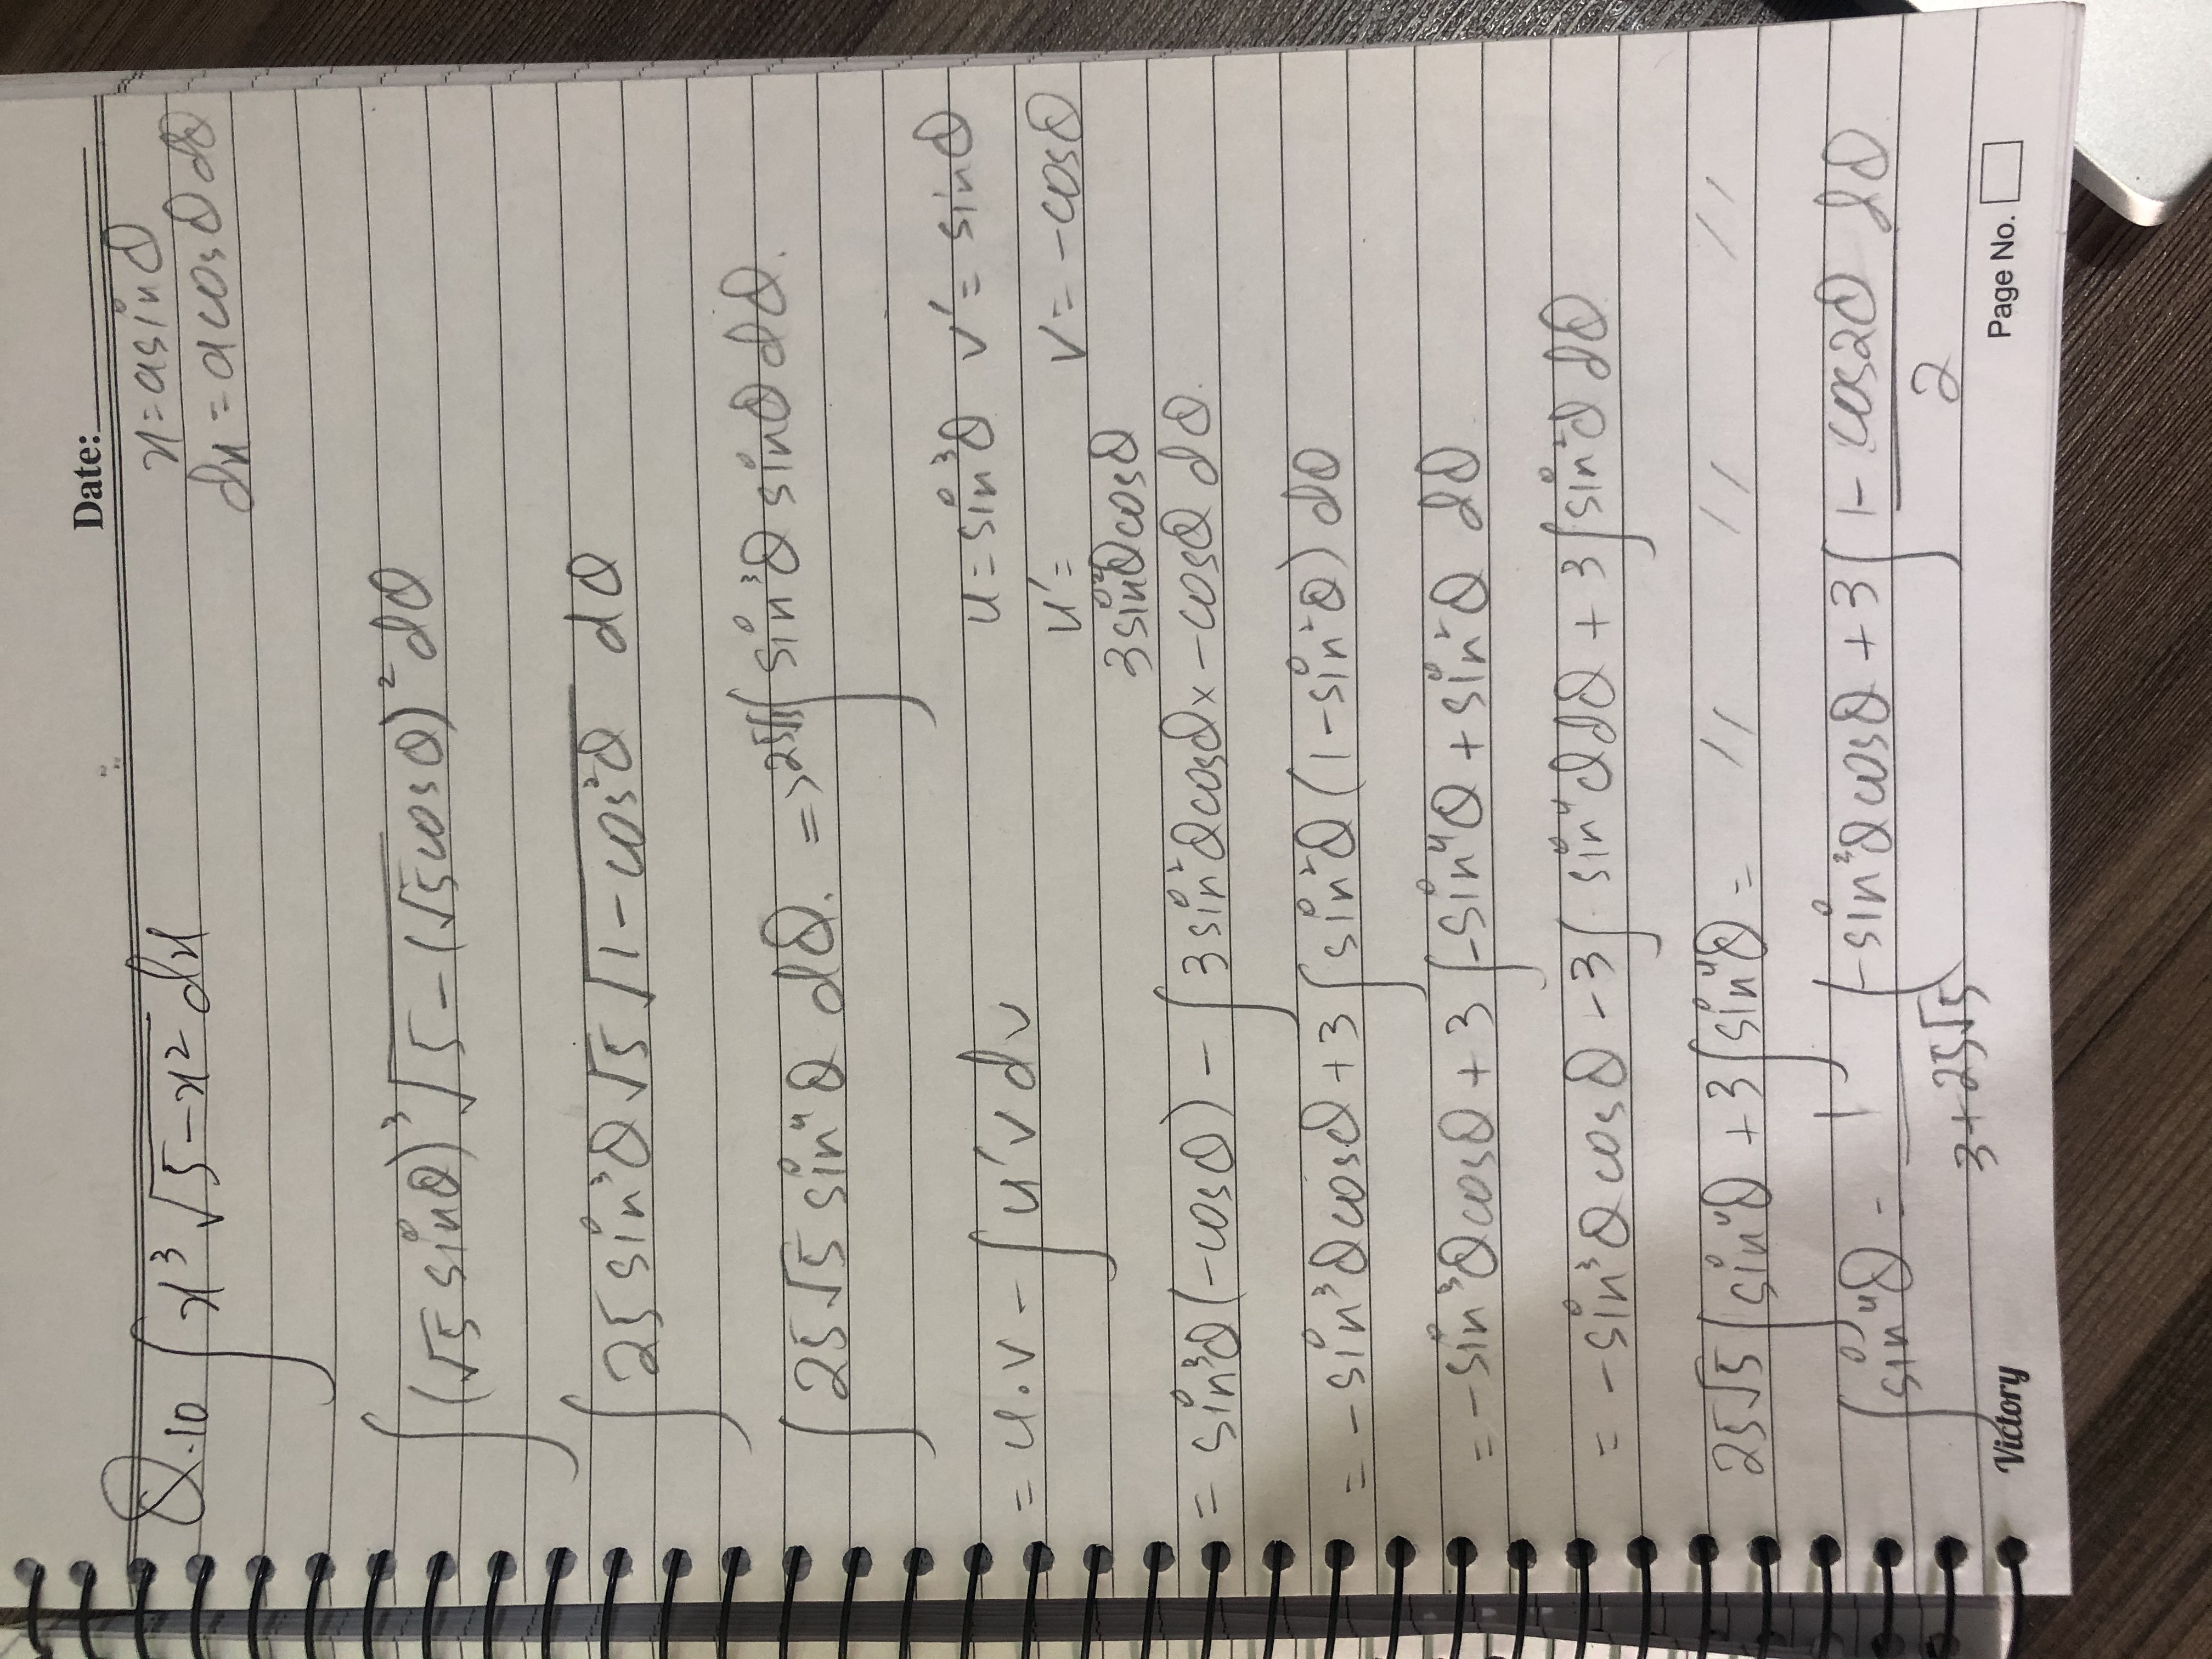 Date:
Q.10 ∫ x³ √(5-x²) dx
x = a sinθ
dx = a cosθ dθ
∫ (√5 sinθ)³ √(5-(√5 cosθ)²) dθ
∫ 25 sin³θ √5 √(1-cos²θ) dθ
∫ 25√5 sin⁴θ dθ. => 25√5 ∫ sin³θ sinθ dθ.
= u.v - ∫ u'v dv
u = sin³θ v' = sinθ
u' = v = -cosθ
3sin²θcosθ
= sin³θ(-cosθ) - ∫ 3sin²θcosθ x -cosθ dθ.
= -sin³θcosθ + 3 ∫ sin²θ (1-sin²θ) dθ
= -sin³θcosθ + 3 ∫ -sin⁴θ + sin²θ dθ
= -sin³θ cosθ - 3 ∫ sin⁴θ dθ + 3 ∫ sin²θ dθ
25√5 ∫ sin⁴θ + 3 ∫ sin⁴θ = // // //
∫ sin⁴θ = 1/(3+25√5) (-sin³θ cosθ + 3 ∫ (1-cos2θ)/2 dθ
Victory
Page No.